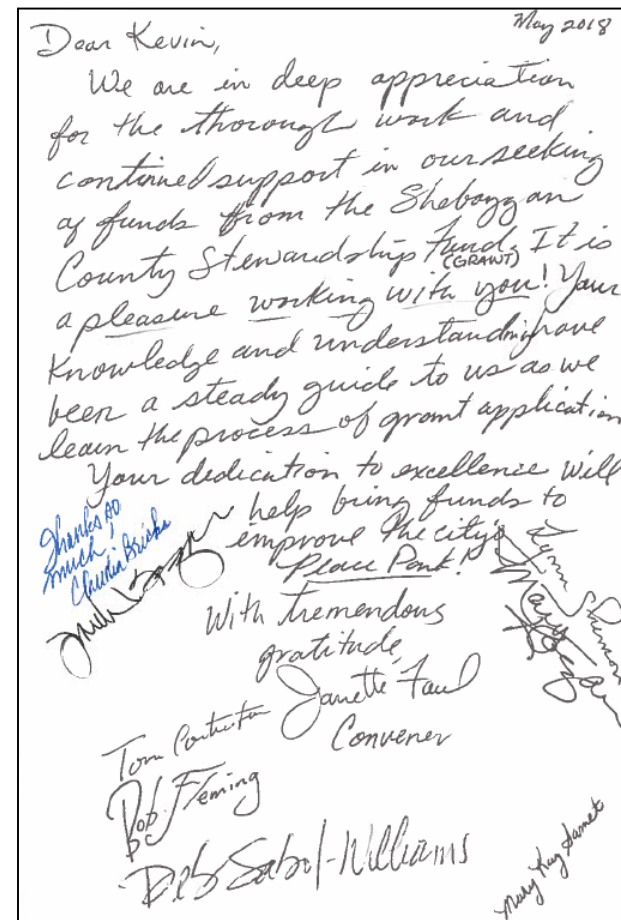 May 2018
Dear Kevin,
We are in deep appreciation
for the thorough work and
continued support in our seeking
of funds from the Sheboygan
County Stewardship Fund. It is
(GRANT)
a pleasure working with you! Your
knowledge and understanding have
been a steady guide to us as we
learn the process of grant application
Your dedication to excellence will
help bring funds to
improve the city's
Peace Park!
Thanks so
much!
Claudia Bricks
Lynn Shuman
Mary
With tremendous
gratitude,
Janette Faul
Convener
Tom
Bob Fleming
Deb Sabol-Williams
Mary Kay Samet